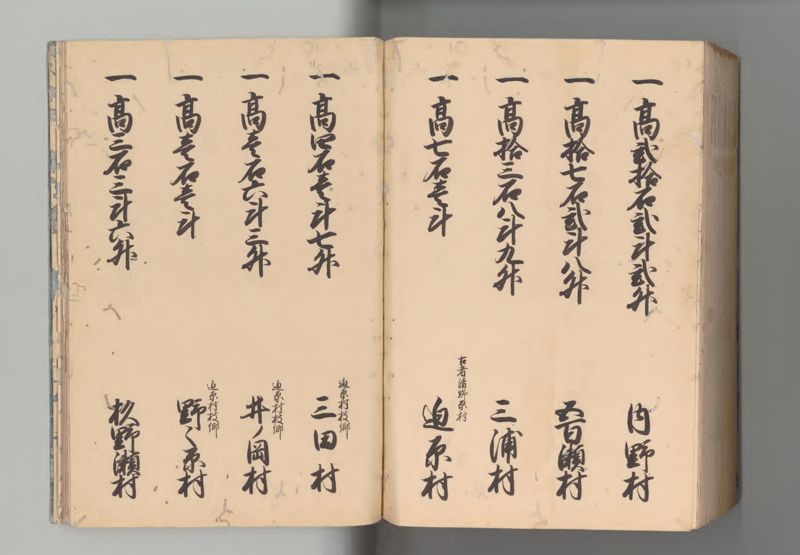 一高弐拾石弐斗弐升 内野村
一高拾七石弐斗八升 五百瀬村
一高拾三石八斗九升 三浦村
一高七石壱斗 古者清野原村 迫原村
一高四石壱斗七升 迫原村枝郷 三田村
一高壱石六斗三升 迫原村枝郷 井ノ岡村
一高壱石壱斗 迫原村枝郷 野々原村
一高三石三斗六升 杦野瀬村